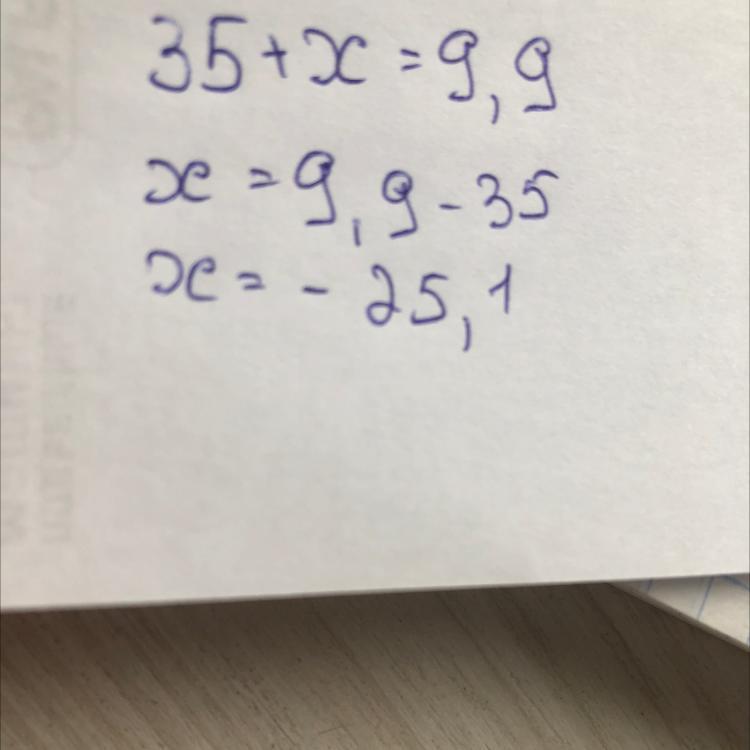 35+x=9,9
x=9,9-35
x=-25,1